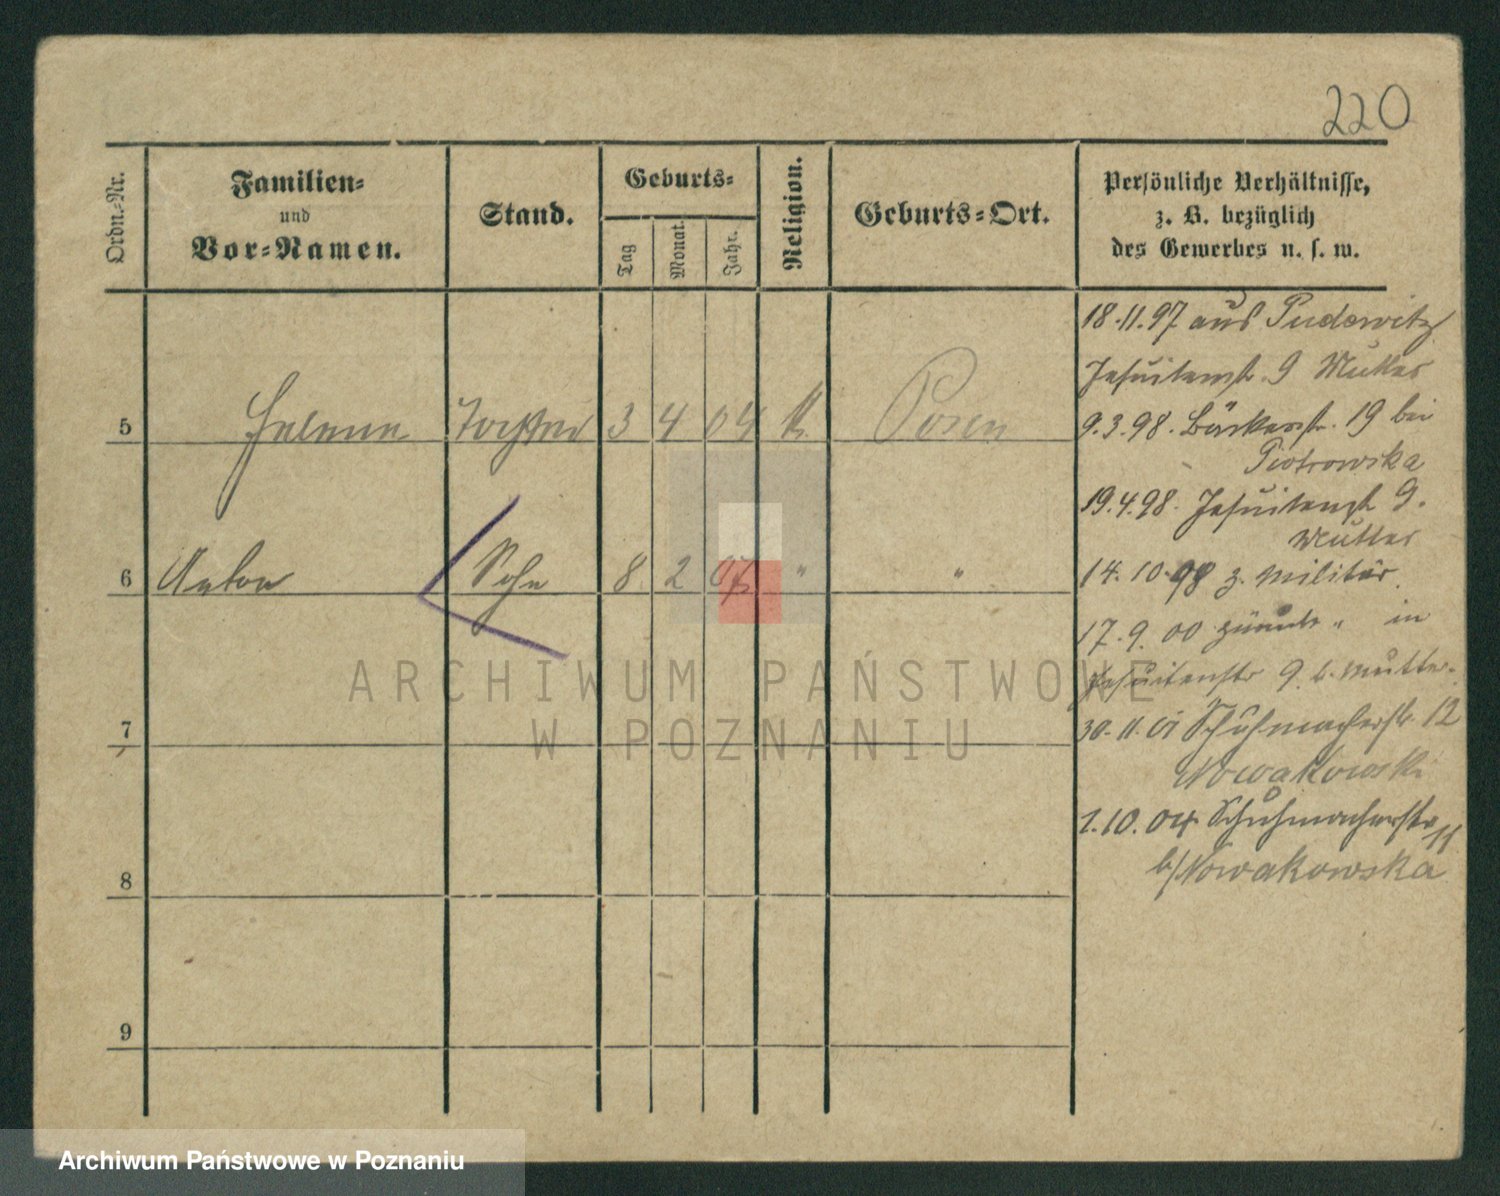 220
Ordn.-Nr.
Familien-
und
Vor-Namen.
Stand.
Geburts-
Tag
Monat.
Jahr.
Religion.
Geburts-Ort.
Persönliche Verhältnisse,
z. B. bezüglich
des Gewerbes u. s. w.
5 Helene Tochter 3 4 04 k. Posen
6 Anton Sohn 8. 2 07 " "
7
8
9
18.11.97 aus Pudewitz
Jesuitenst. 9 Mutter
9.3.98. Bäckerstr. 19 bei
Piotrowska
19.4.98. Jesuitenst 9.
Mutter
14.10.98 z. Militär
17.9.00 zurück " in
Jesuitenstr 9 b. Mutter.
30.11.01 Schuhmacherstr. 12
Nowakowski
1.10.04. Schuhmacherstr 11
b/Nowakowska
ARCHIWUM PAŃSTWOWE
W POZNANIU
Archiwum Państwowe w Poznaniu